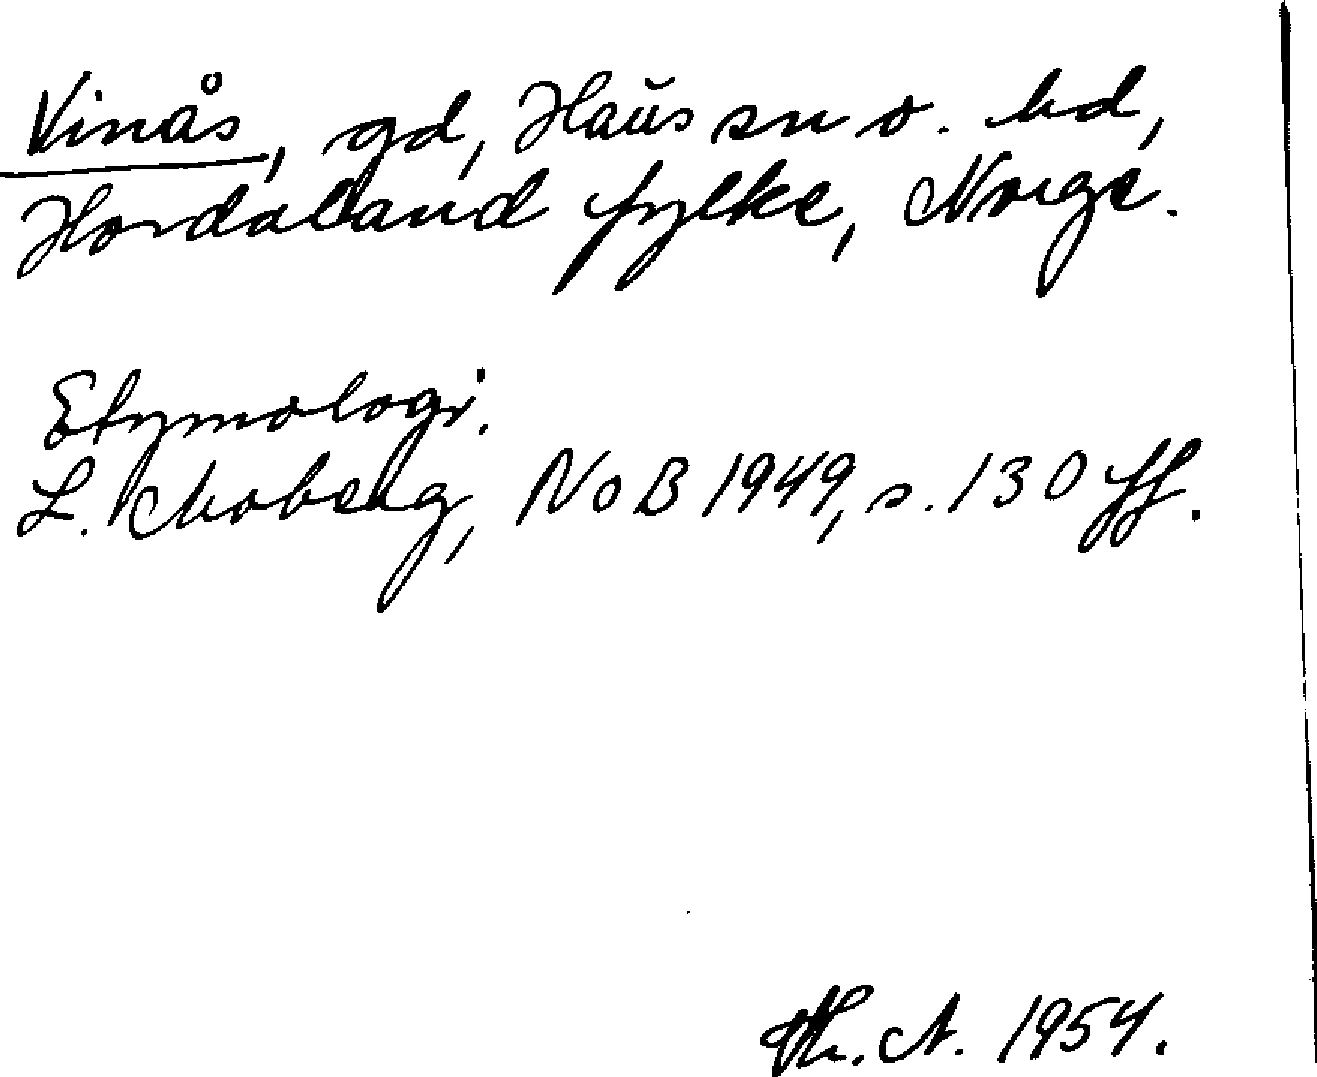 Vinås, gd, Haus sn o. hd,
Hordaland fylke, Norge.
Etymologi.
L. Moberg, NoB 1949, s. 130 ff.
Th. A. 1954.